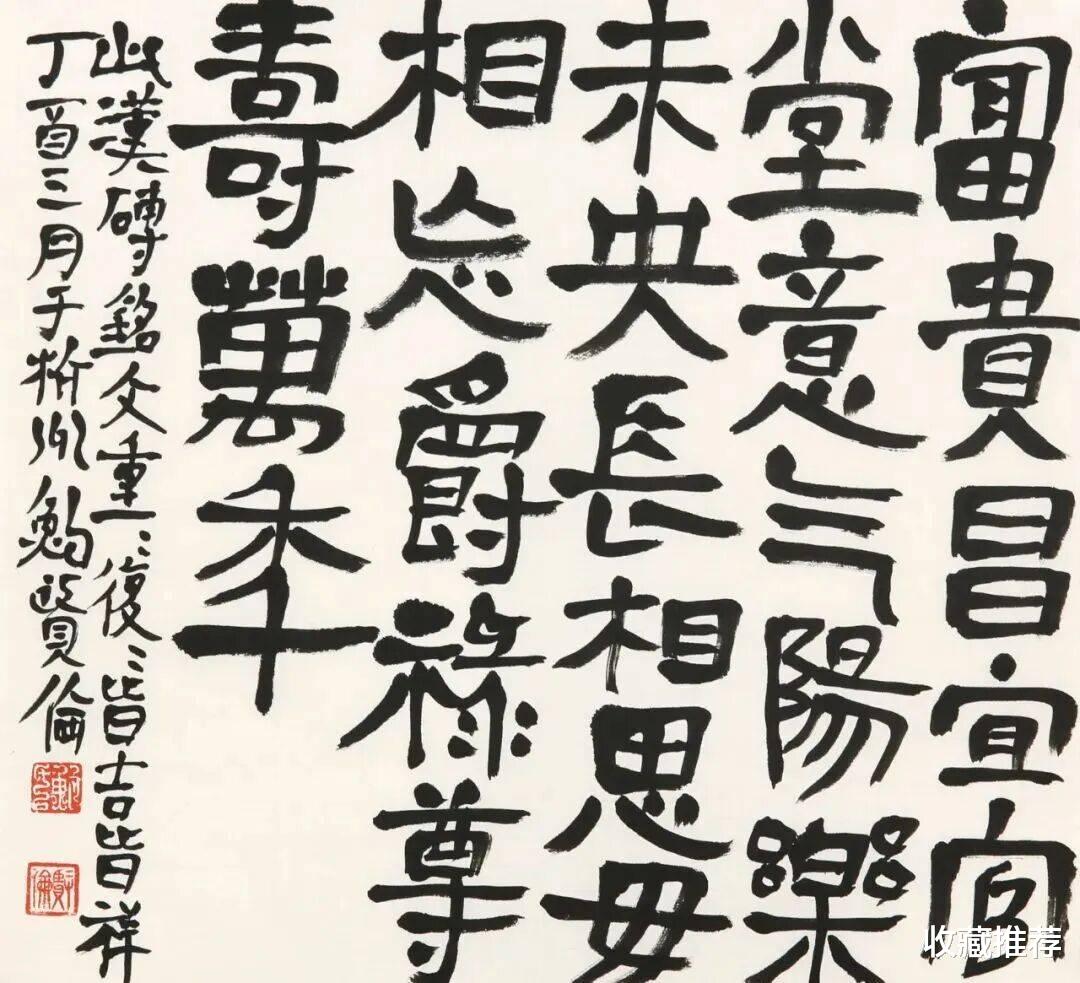 富貴昌宜宮
堂意气陽樂
未央長相思毋
相忘爵祿尊
壽萬年
此漢磚銘文重〻復〻皆吉皆祥
丁酉三月于杭州鮑賢倫
收藏推荐